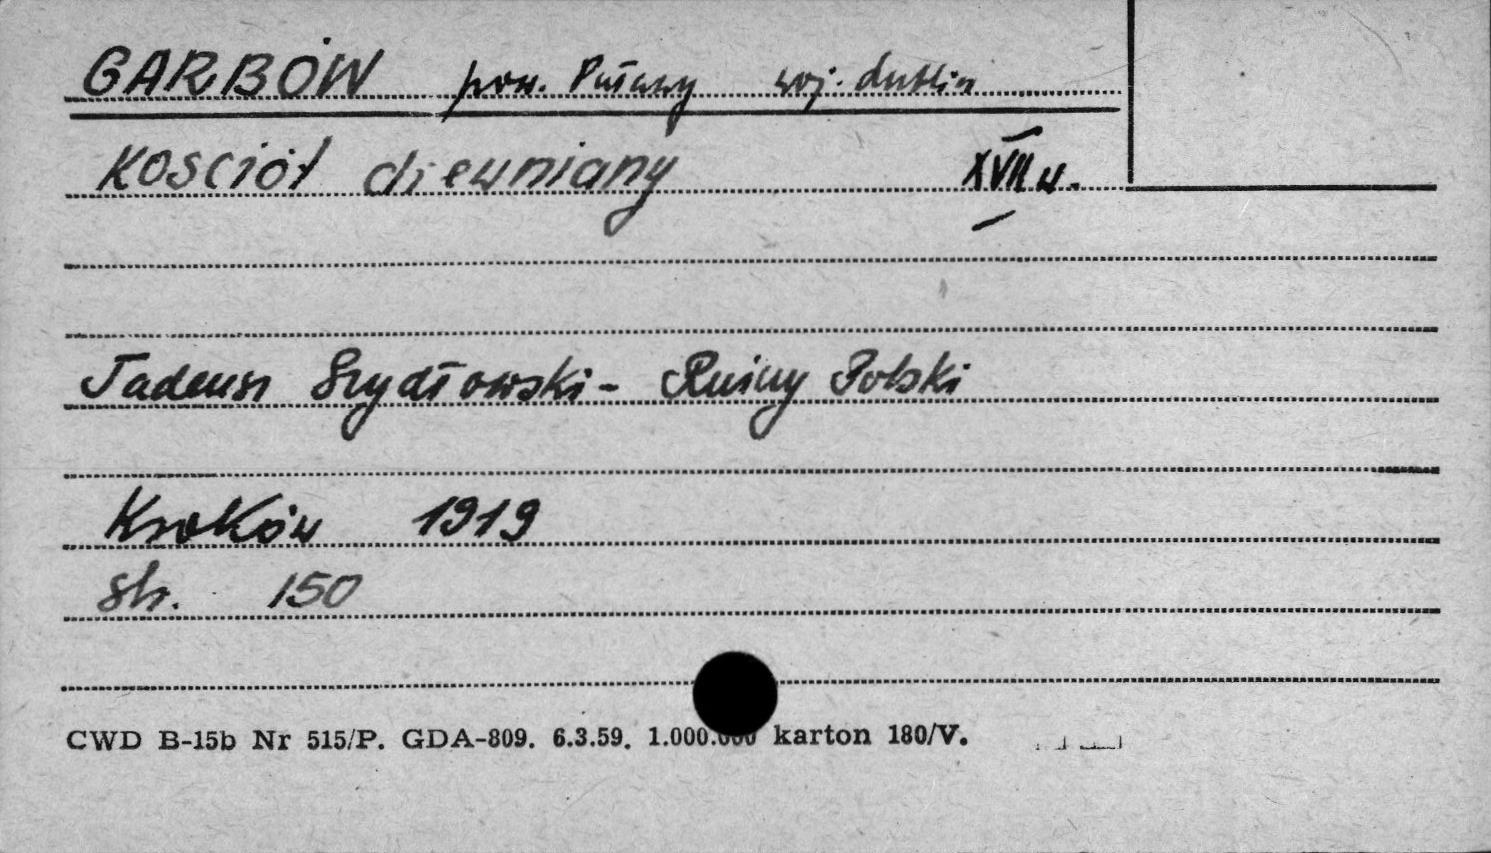 GARBÓW pow. Puławy woj. Lublin
Kościół drewniany XVII w.
Tadeusz Szydłowski - Ruiny Polski
Kraków 1919
str. 150
CWD B-15b Nr 515/P. GDA-809. 6.3.59. 1.000.000 karton 180/V.